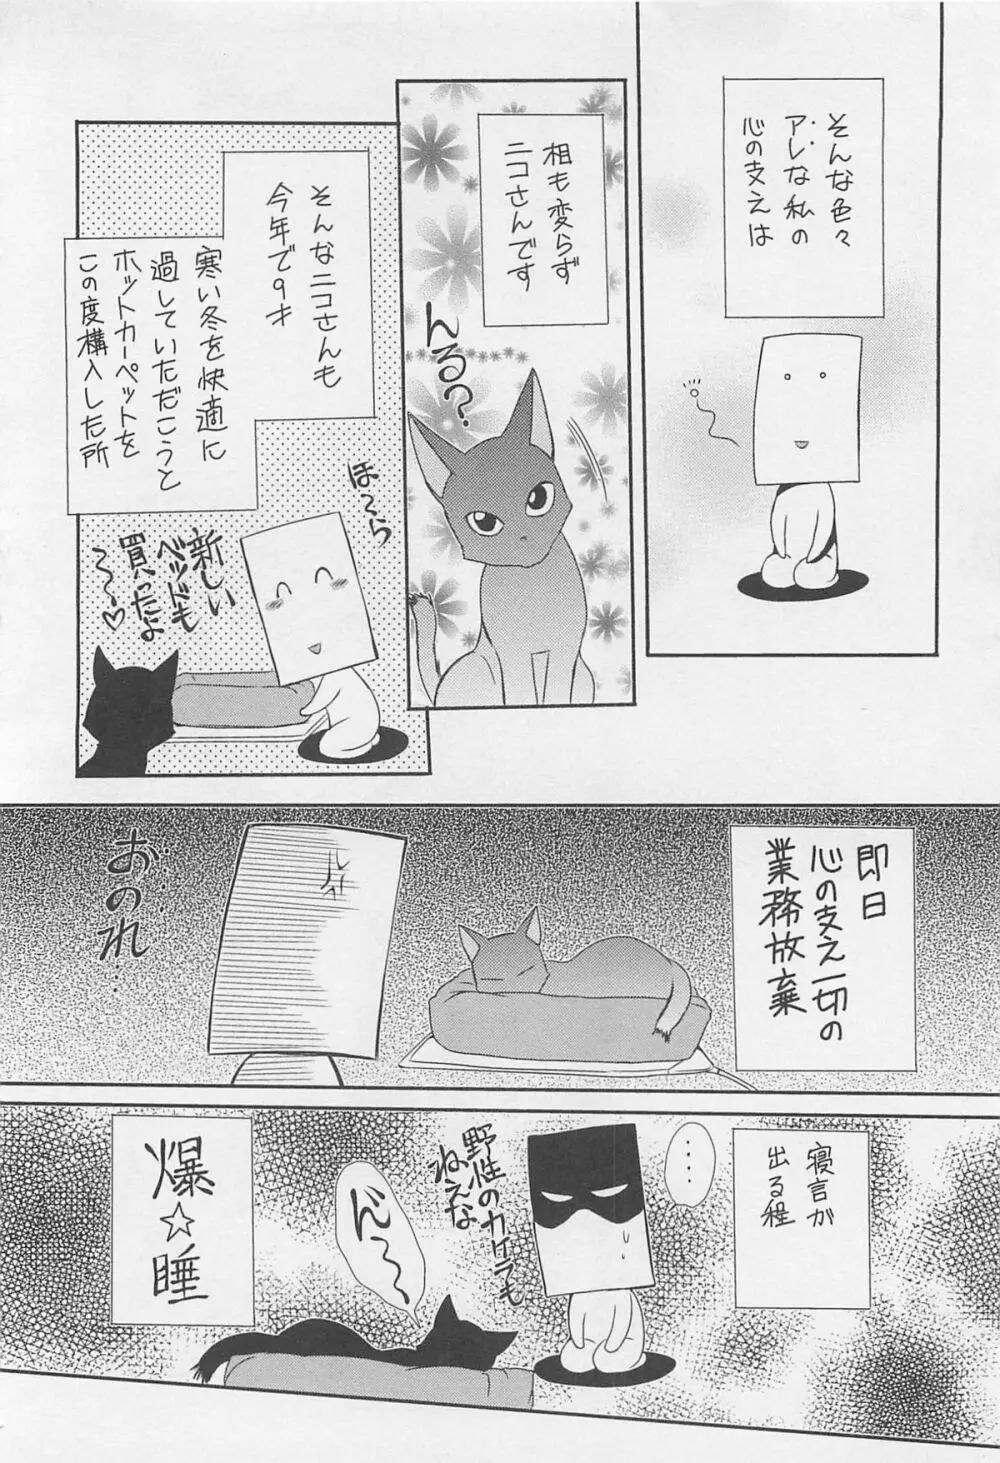 そんな色々
アレな私の
心の支えは
相も変らず
ニコさんです
んる?
そんなニコさんも
今年で9才
寒い冬を快適に
過していただこうと
ホットカーペットを
この度構入した所
ほ~ら
新しい
ベッドも
買ったよ
~~♡
即日
心の支え一切の
業務放棄
おのれ…
寝言が
出る程
……
野性のカケラも
ねえな
ん~~
爆☆睡